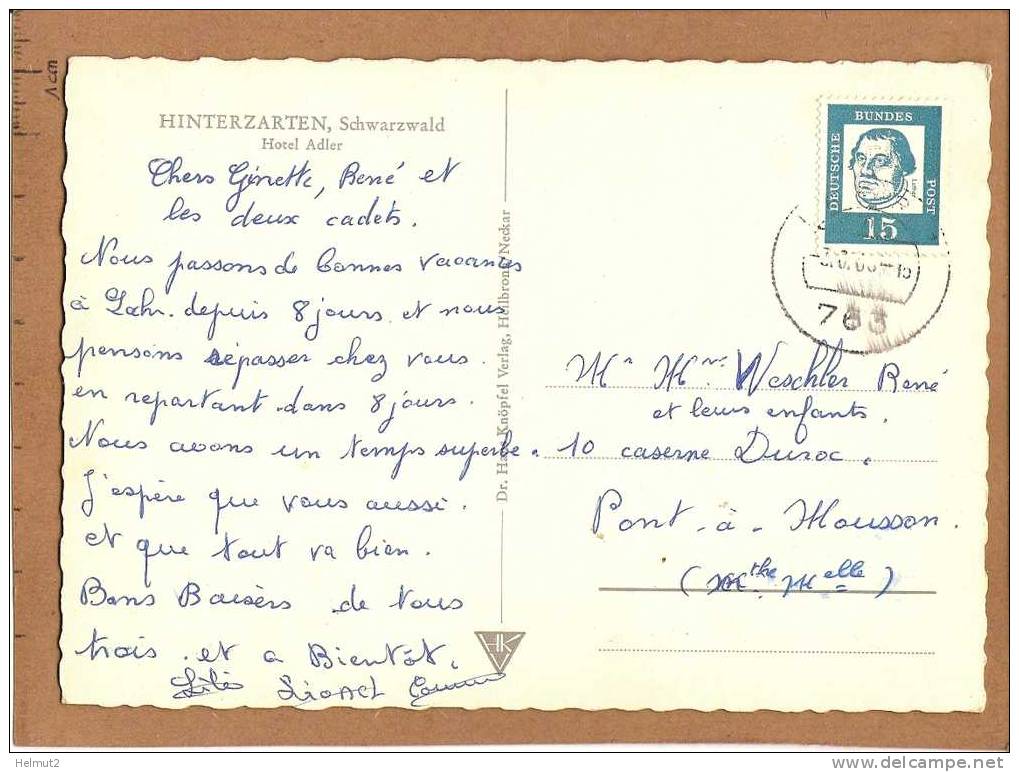 1cm
HINTERZARTEN, Schwarzwald
Hotel Adler
Chers Ginette, René et
les deux cadets.
Nous passons de bonnes vacances
à Lahr. depuis 8 jours et nous
pensons repasser chez vous.
en repartant dans 8 jours.
Nous avons un temps superbe.
J'espère que vous aussi.
et que tout va bien.
Bons Baisers de tous
trois. et a Bientôt.
Lili Lionel
Dr. Hans Knöpfel Verlag, Heilbronn/Neckar
HK
V
DEUTSCHE
BUNDES
POST
Luther
15
763
Mr Mme Weschler René
et leurs enfants.
10 caserne Duroc.
Pont-à-Mousson.
(Mthe Melle)
Helmut2
www.delcampe.net